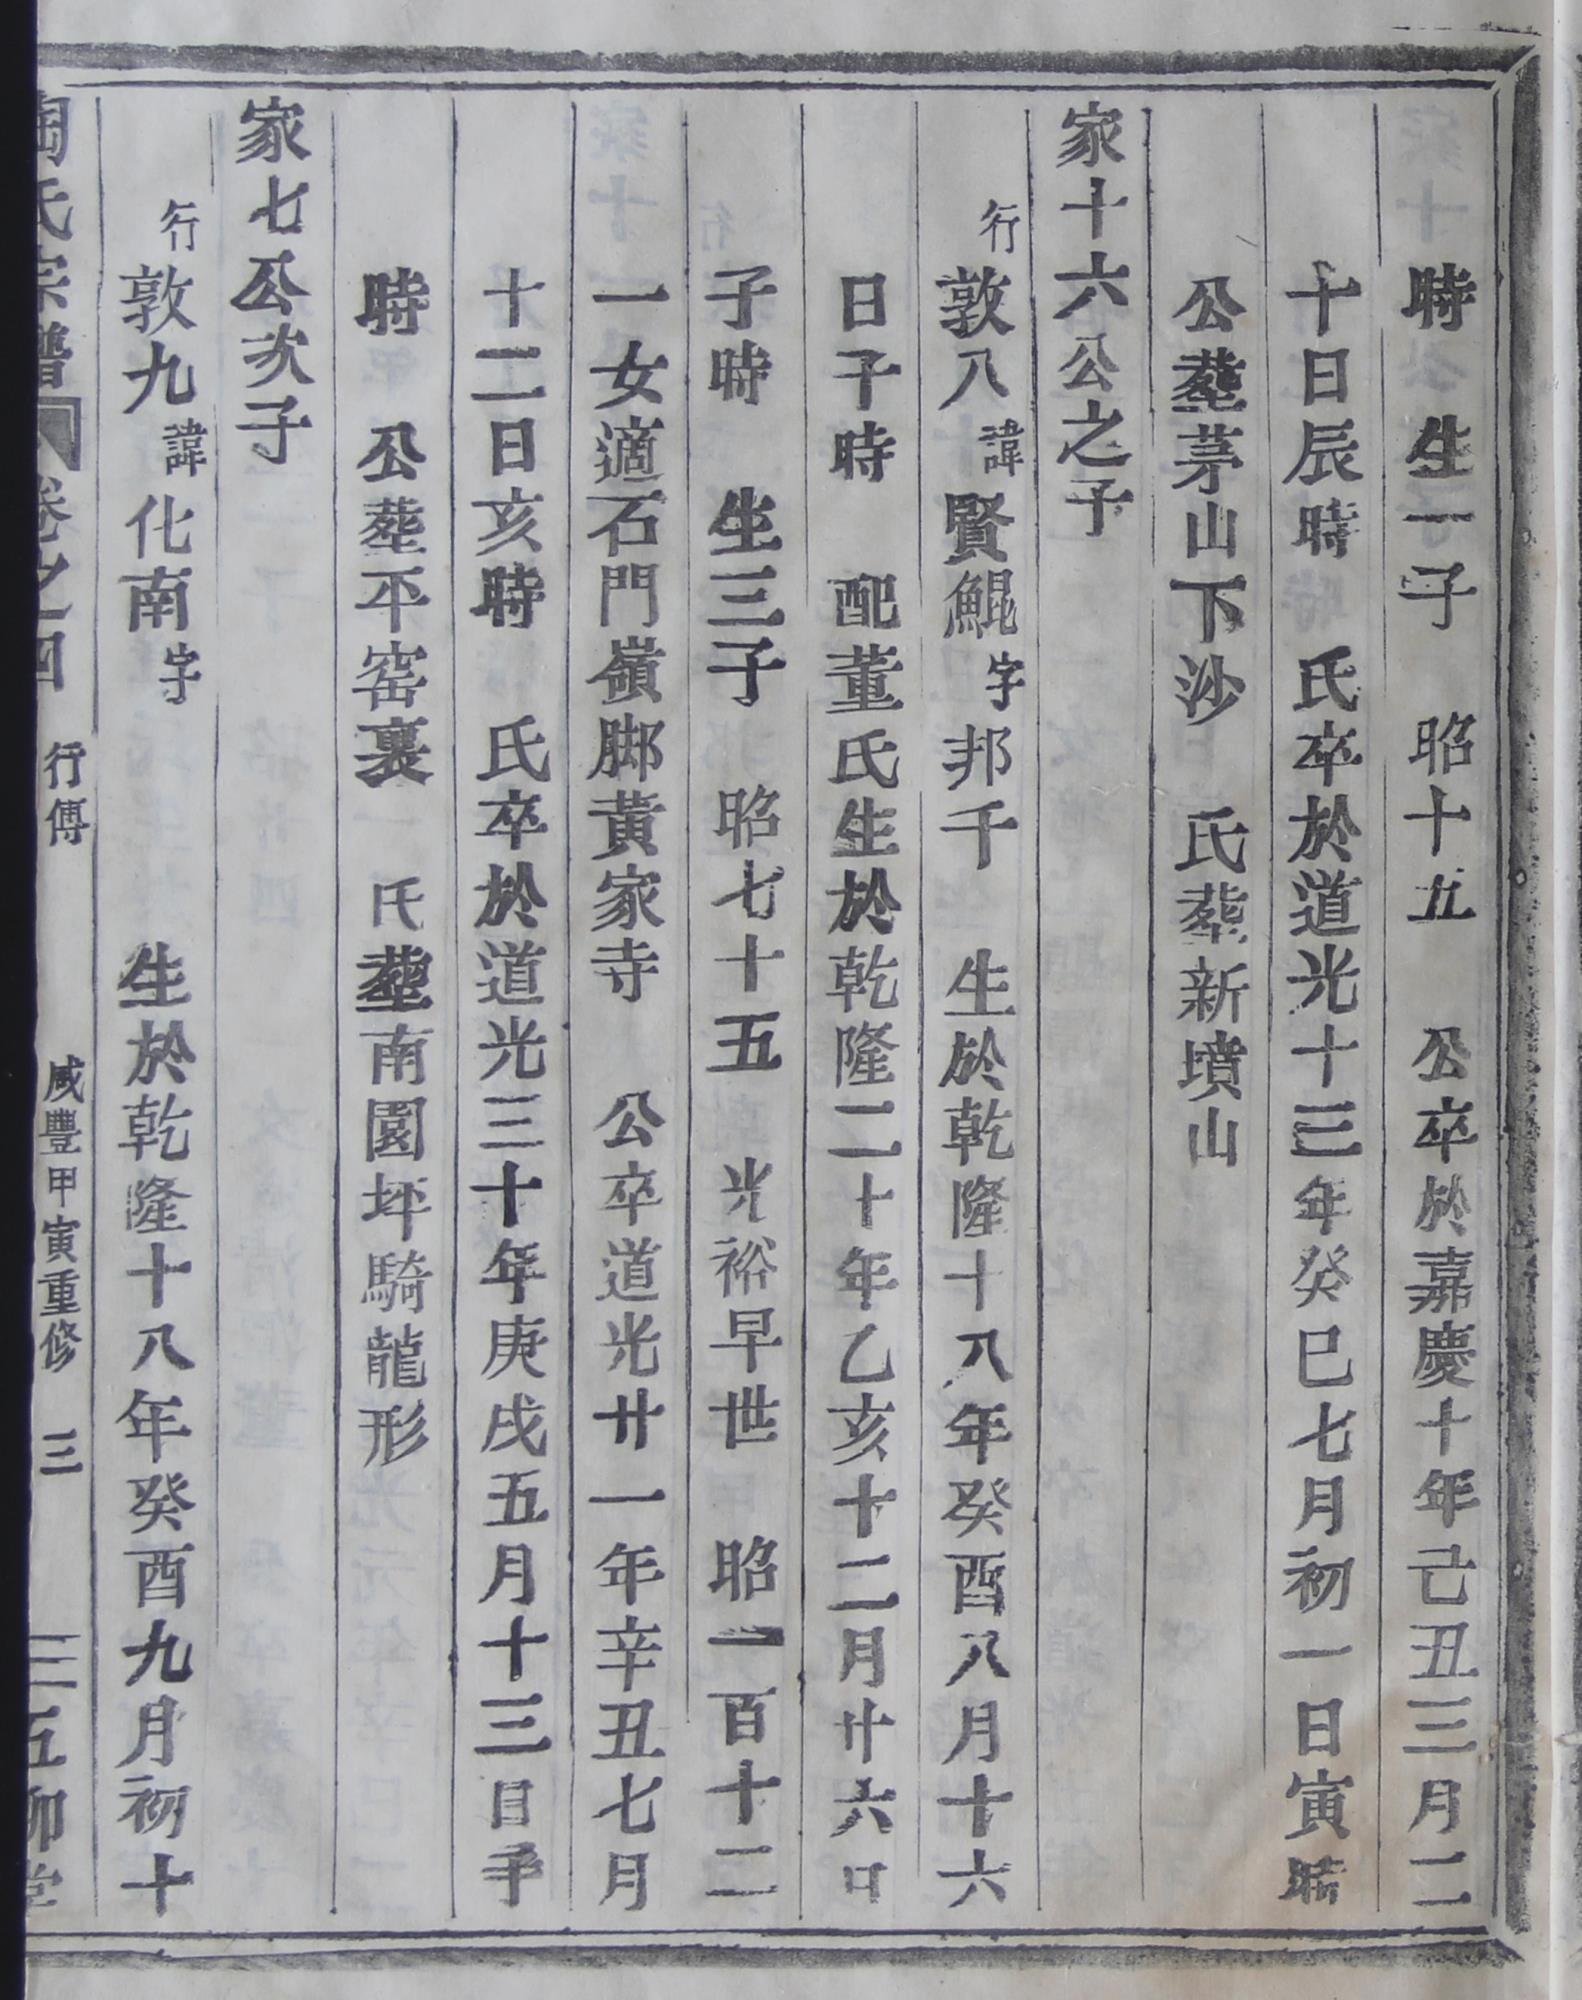 時　生一子　昭十五　公卒於嘉慶十年己丑三月二
十日辰時　氏卒於道光十三年癸巳七月初一日寅時
公塟茅山下沙　氏塟新墳山
家十六公之子
行敦八諱賢鯤字邦千　生於乾隆十八年癸酉八月十六
日子時　配董氏生於乾隆二十年乙亥十二月廿六日
子時　生三子　昭七十五　光裕早世　昭一百十二
一女適石門嶺脚黃家寺　公卒道光廿一年辛丑七月
十二日亥時　氏卒於道光三十年庚戌五月十三日子
時　公塟平窑裏　氏塟南園坪騎龍形
家七公次子
行敦九諱化南字　生於乾隆十八年癸酉九月初十
陶氏宗譜　卷之四　行傳　咸豐甲寅重修　三　三五柳堂